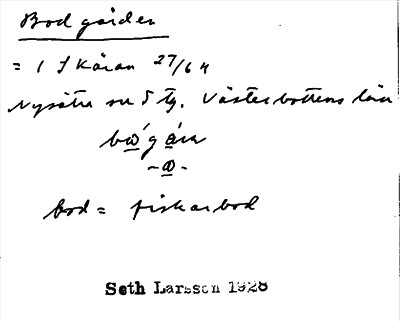 Bodgården
= 1 Skäran 27/64
Nysätra sn Västerbottens län
- a -
bod = fiskarbod
Seth Larsson 1928